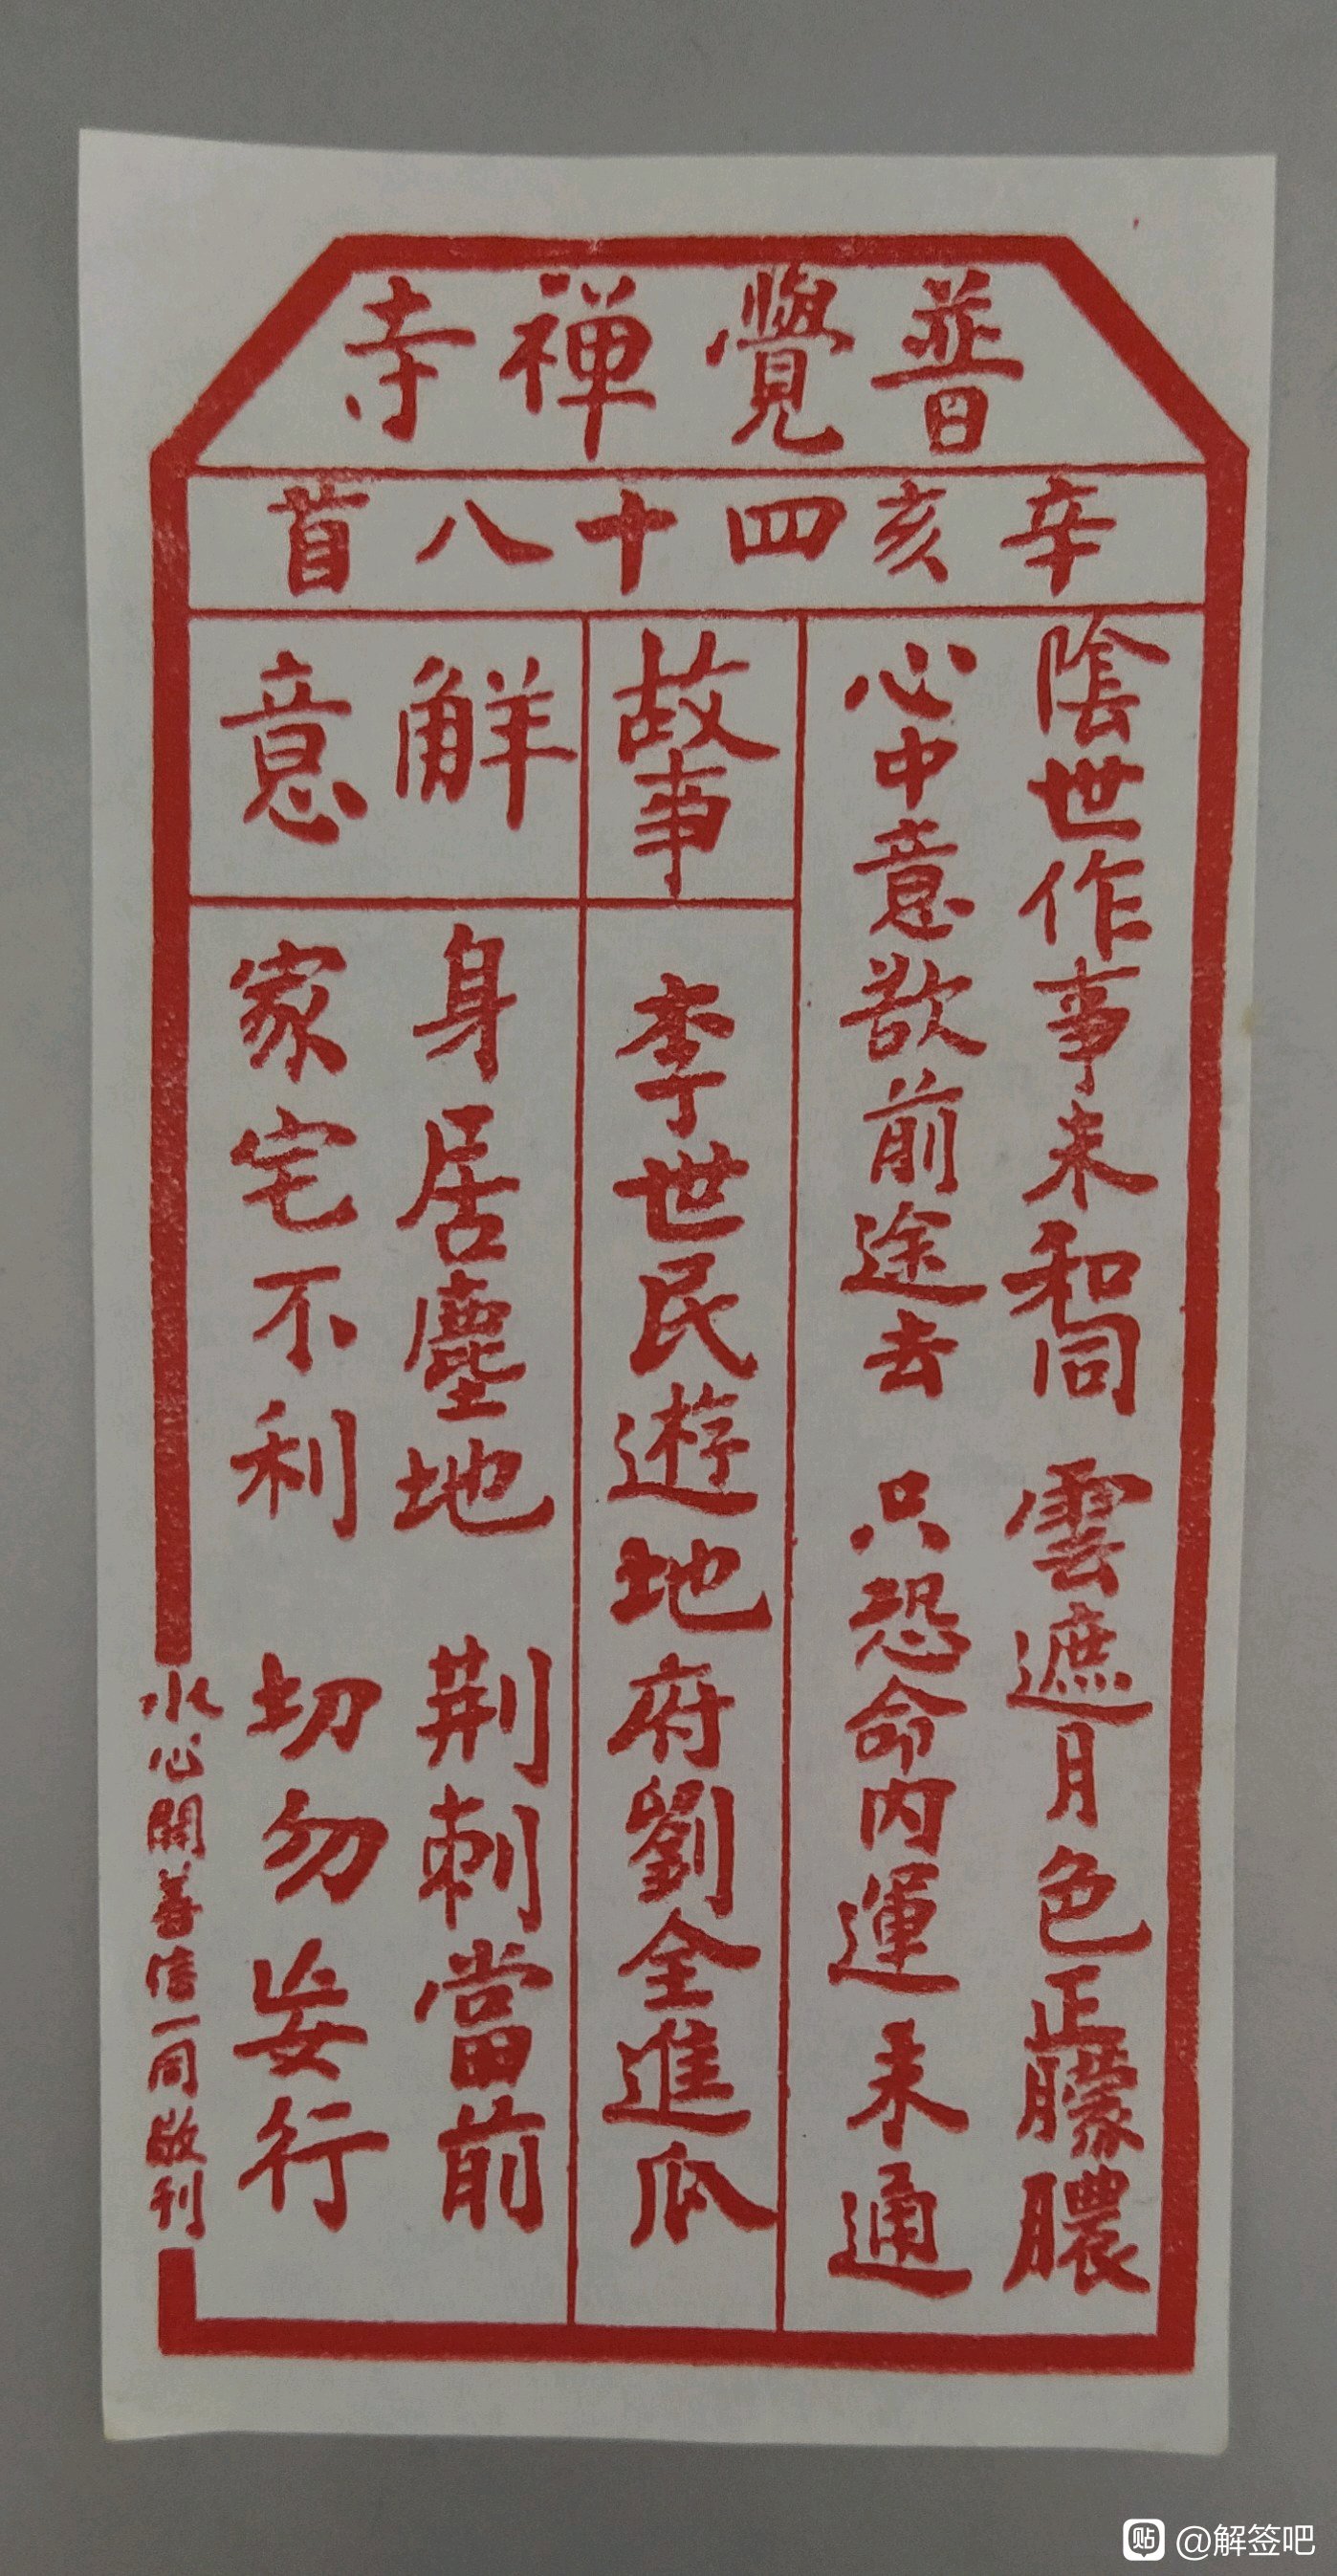 普覺禪寺
辛亥四十八首
陰世作事未和同 雲遮月色正朦朧
心中意欲前途去 只恐命内運未通
故事
李世民遊地府劉全進瓜
解意
身居塵地 荆刺當前
家宅不利 切勿妄行
水心開善信一同敬刊
貼 @解签吧